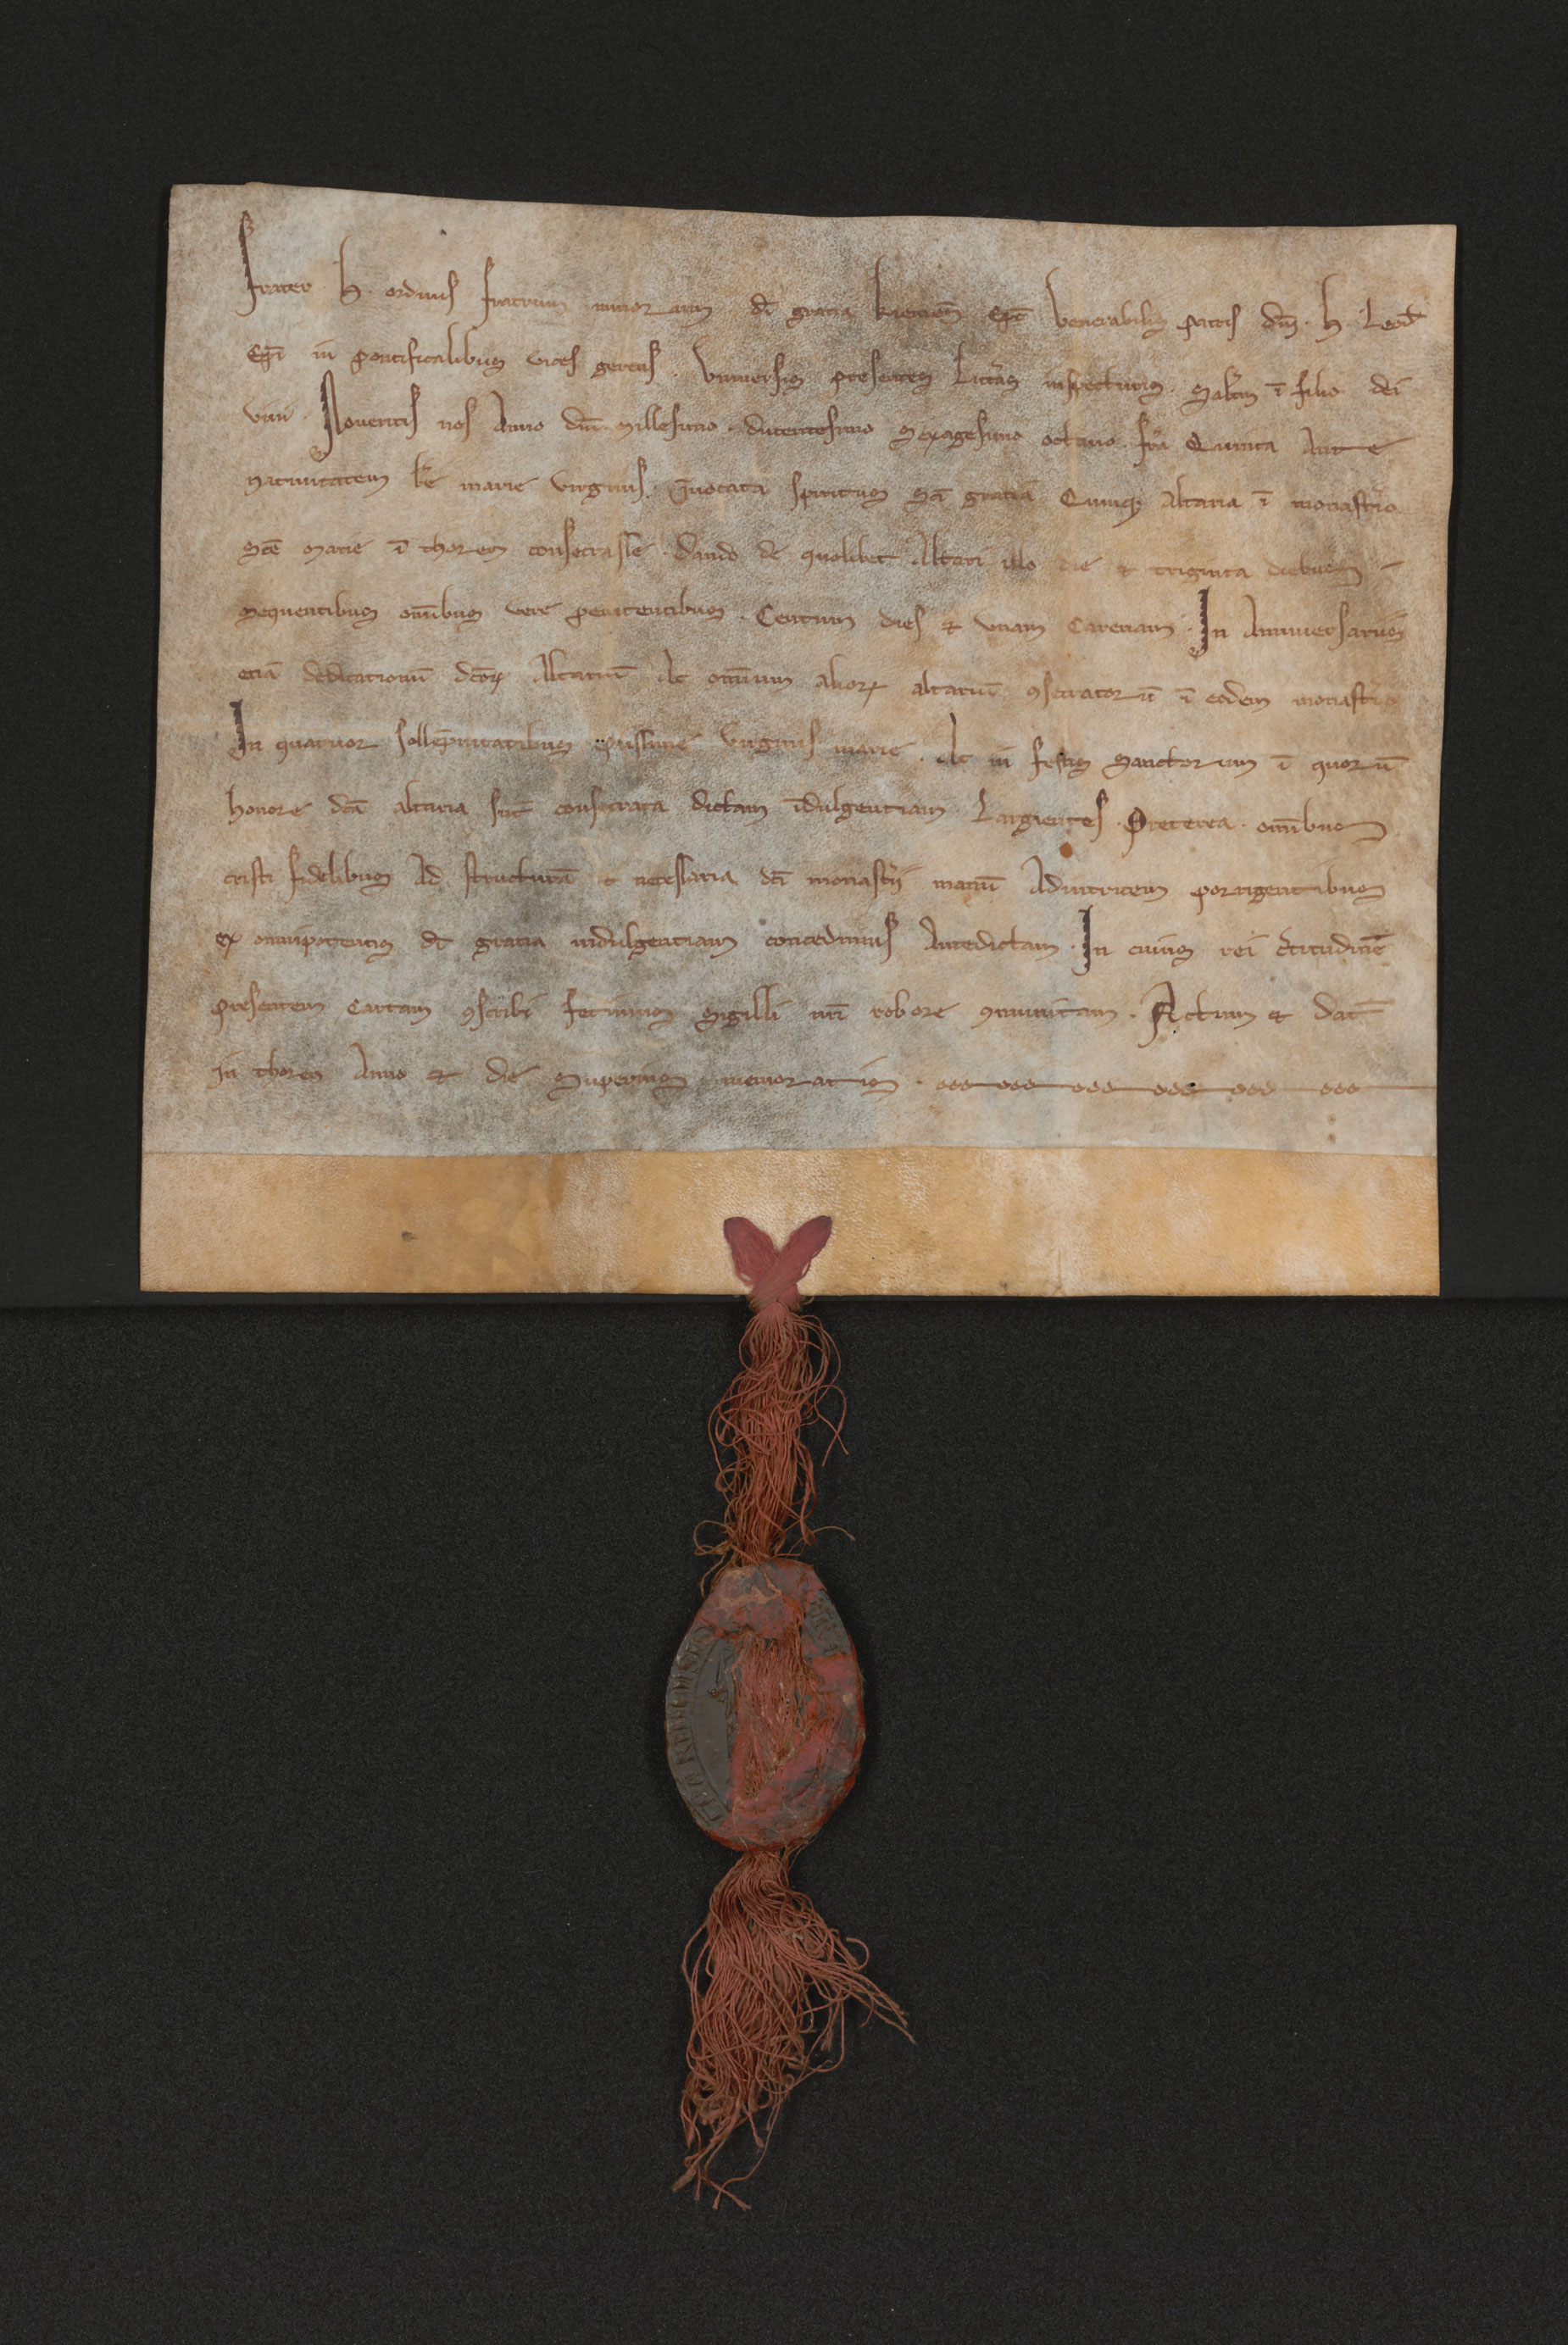 Frater h. ordinis fratrum minorum dī gratia kieniēn Epc̄ Venerabilis patris dn̄i. h. Leod̄
Epī in pontificalibus vices gerens. Vniuersis presentes Litt̄as inspecturis. Salt̄m ī filio dei
viui. Noueritis nos Anno dn̄i Millesimo. ducentesimo Sexagesimo octauo. fr̄a Quinta Ante
natiuitatem bē marie virginis. īuocata spiritus Sc̄i gratia Quinq; Altaria ī monast̄io
Scē Marie ī thoren consecrasse. Dando de quolibet Altari illo die et triginta diebus
Sequentibus om̄ibus vere penitentibus. Centum dies et vnam Carenam. In Anniuersariis
etiā dedicationū dc̄oꝝ Altariū Ac omnium alioꝝ altariū ꝯsecratorū ī eodem monast̄io
In quatuor sollēpnitatibus piissime virginis marie. Ac in festis Sanctorum ī quorū
honore dc̄a altaria sūt consecrata dictam īdulgentiam Largientes. Preterea. om̄ibus
cristi fidelibus Ad structurā et necessaria dc̄i monast̄ii manū Adiutricem porrigentibus
ex omnipotentis dī gratia indulgentiam concedimus Antedictam. In cuius rei c̄titudinē
presentem Cartam ꝯscribi fecimus Sigilli nr̄i robore ꝯmunitam. Actum et dat̄
in thoren Anno et die Superius memoratis.